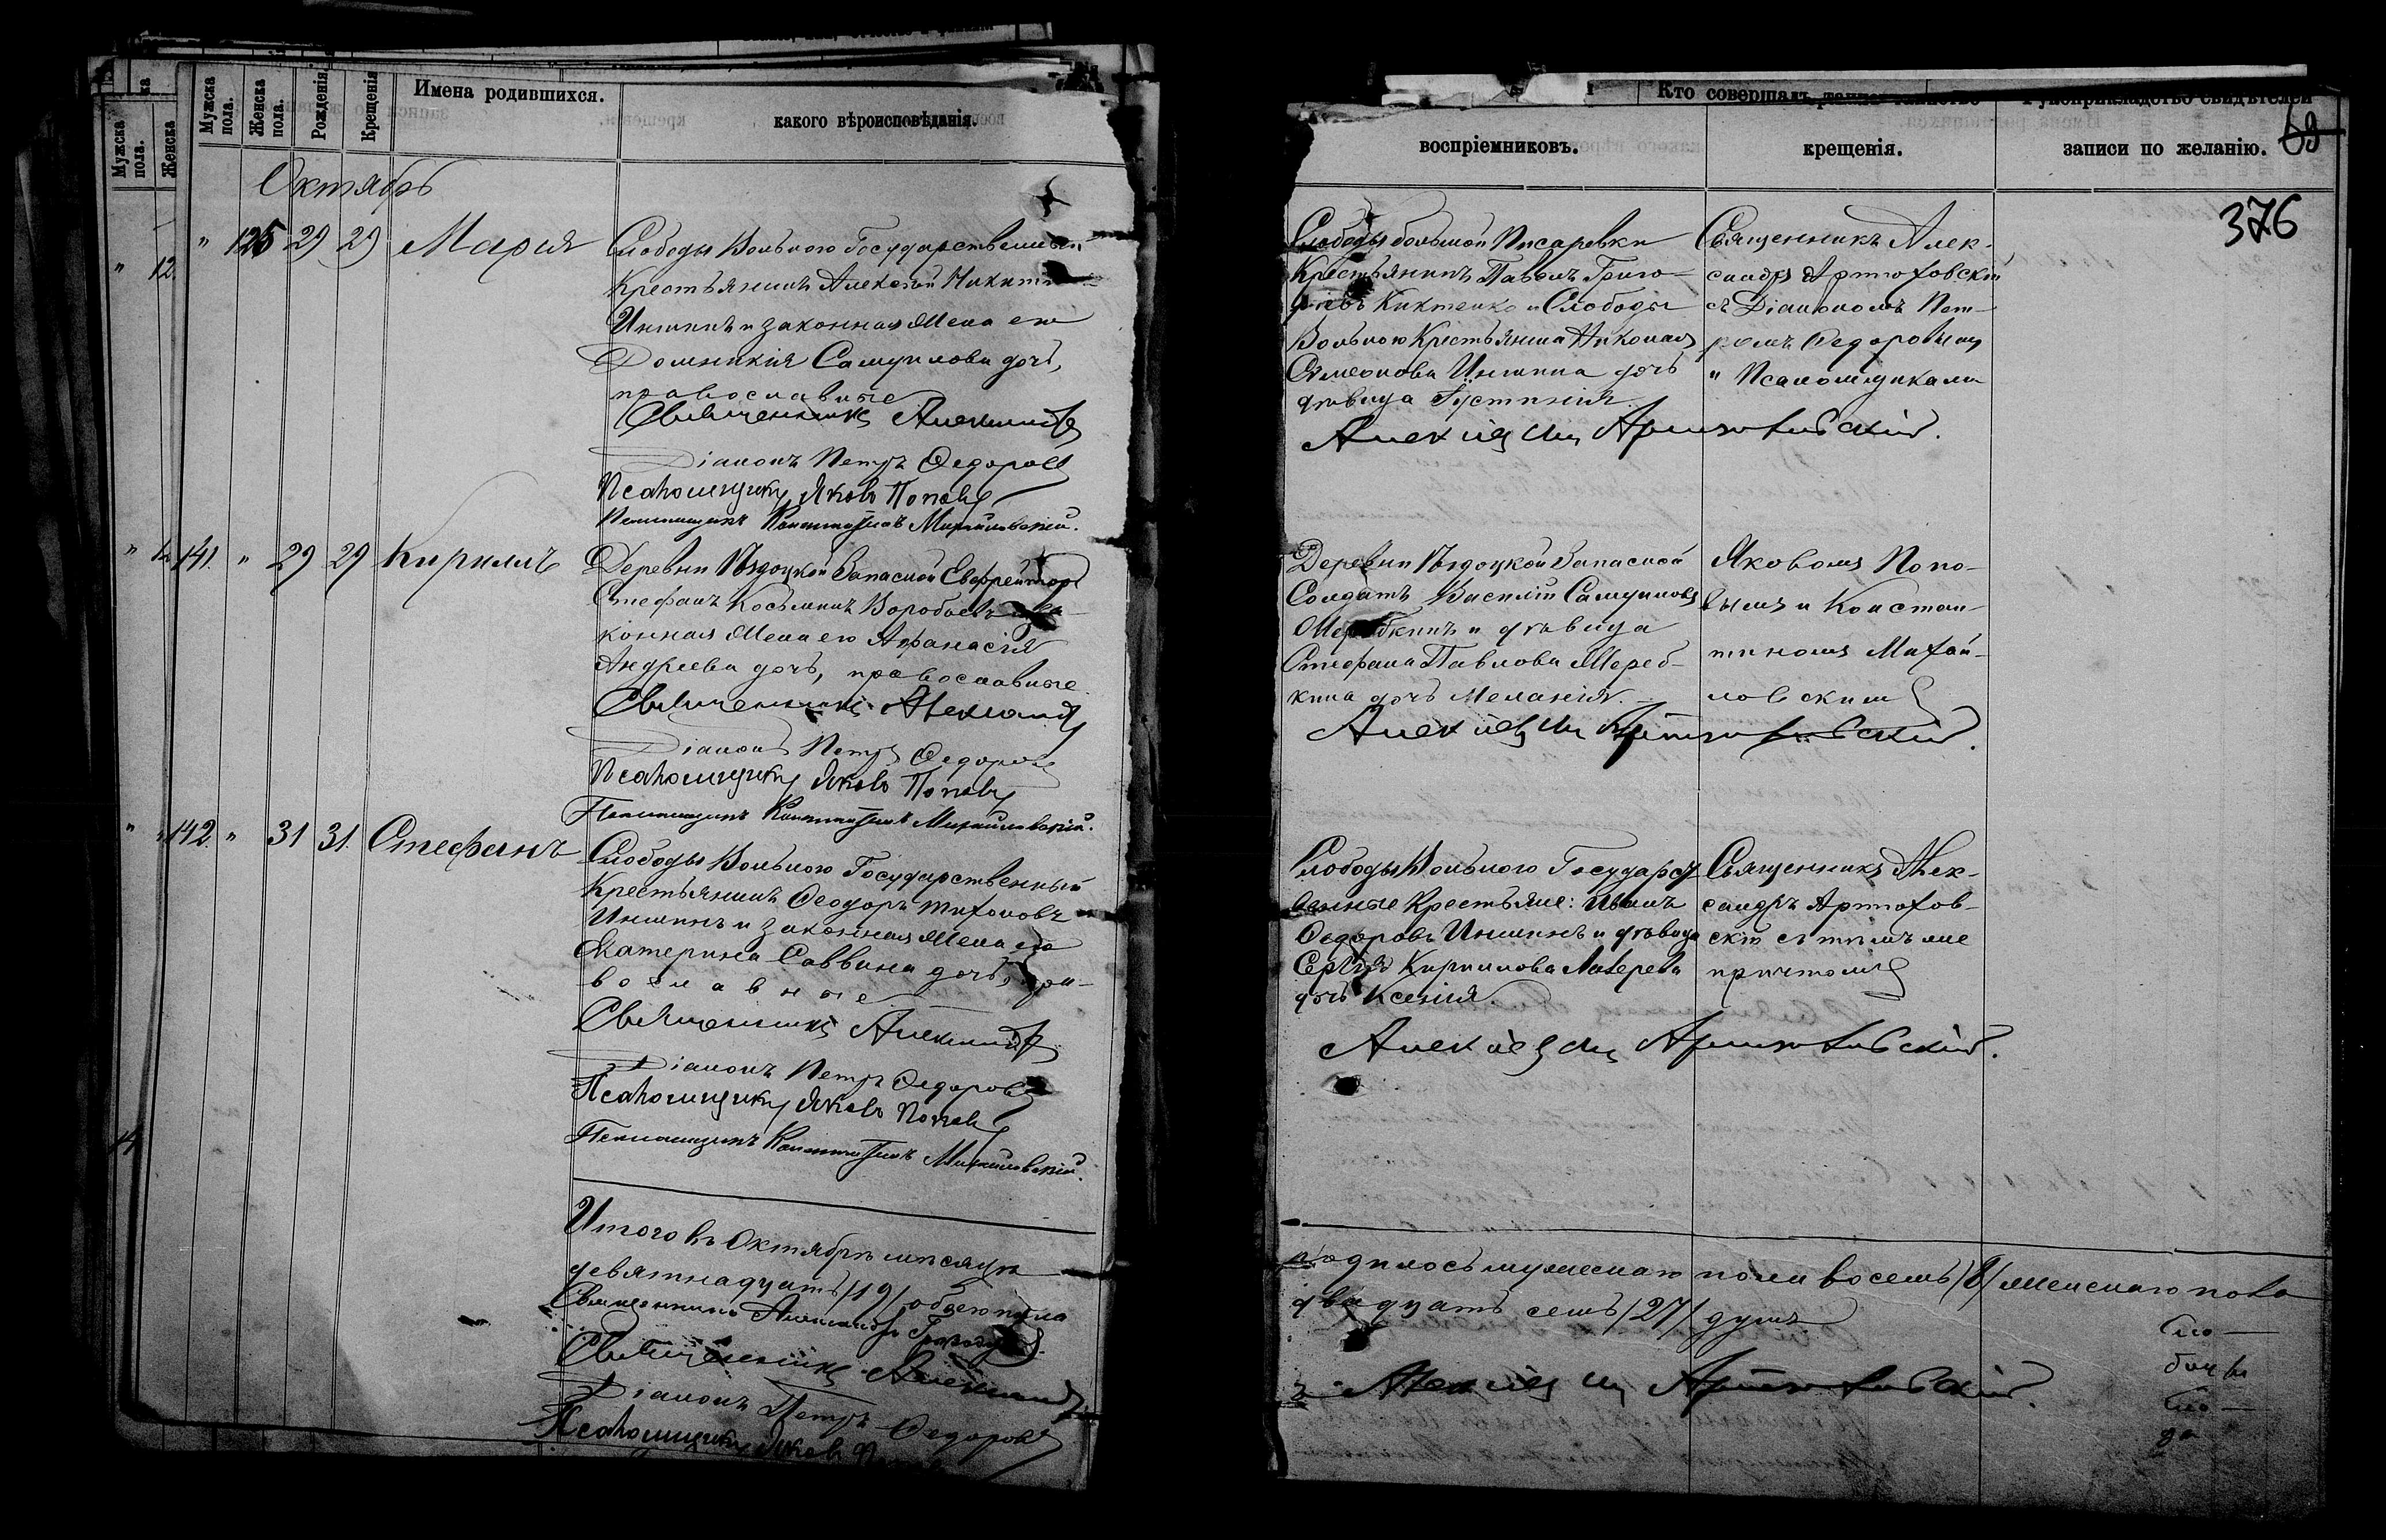 Мужска пола.
Женска
Мужска пола.
Женска пола.
Рожденія.
Крещенія
Имена родившихся.
какого вѣроисповѣданія.
Октябрь
" 125 29 29 Марія
Слободы Вольного Государственный
Крестьянинъ Алексѣй Никитинъ
Иншинъ и законная жена его
Домникія Самуилова дочь,
православные
Священникъ Александръ
Діаконъ Петръ Ѳедоровъ
Псаломщикъ Яковъ Поповъ
Псаломщикъ Константинъ Михайловскій.
141. " 29 29 Кириллъ
Деревни Запасной Ефрейторъ
Стефанъ Косьминъ Воробьевъ
конная жена его Афанасія
Андреева дочь, православные
Священникъ Александръ
Діаконъ Петръ Ѳедоровъ
Псаломщикъ Яковъ Поповъ
Псаломщикъ Константинъ Михайловскій.
142. " 31 31. Стефанъ
Слободы Вольного Государственный
Крестьянинъ Ѳеодоръ Тихоновъ
Иншинъ и законная жена его
Екатерина Саввина дочь, пра-
вославные
Священникъ Александръ
Діаконъ Петръ Ѳедоровъ
Псаломщикъ Яковъ Поповъ
Псаломщикъ Константинъ Михайловскій.
Итого въ Октябрѣ мѣсяцѣ
девятнадцать /19/ обоего пола
Священникъ Александръ
Священникъ Александръ
Діаконъ Петръ Ѳедоровъ
Псаломщикъ Яковъ
Кто совершалъ
воспріемниковъ.
крещенія.
Рукоприкладство свидѣтелей
записи по желанію.
69
376
Слободы большой Писаревки
Крестьянинъ Павелъ Григо-
рьевъ Киктенко и Слободы
Вольного Крестьянина Николая
Симеонова Иншина дочь
дѣвица Іустинія
Священникъ Алек-
сандръ Артюховскій
съ Діакономъ Пет-
ромъ Ѳедоровымъ
и Псаломщиками
Александръ Артюховскій.
Деревни Запасной
Солдатъ Василій Самуиловъ
Жеребкинъ и дѣвица
Стефана Павлова Жереб-
кина дочь Меланія.
Яковомъ Попо-
вымъ и Констан-
тиномъ Михай-
ловскимъ
Александръ Артюховскій.
Слободы Вольного Государст
венные Крестьяне: Иванъ
Ѳедоровъ Иншинъ и дѣвица
Сергѣя Кирилова Лазерева
дочь Ксенія.
Священникъ Алек-
сандръ Артюхов-
скій съ тѣмъ же
причтомъ
Александръ Артюховскій.
родилось мужескаго пола восемь /8/ женскаго пола
двадцать семь /27/ душъ
Александръ Артюховскій.